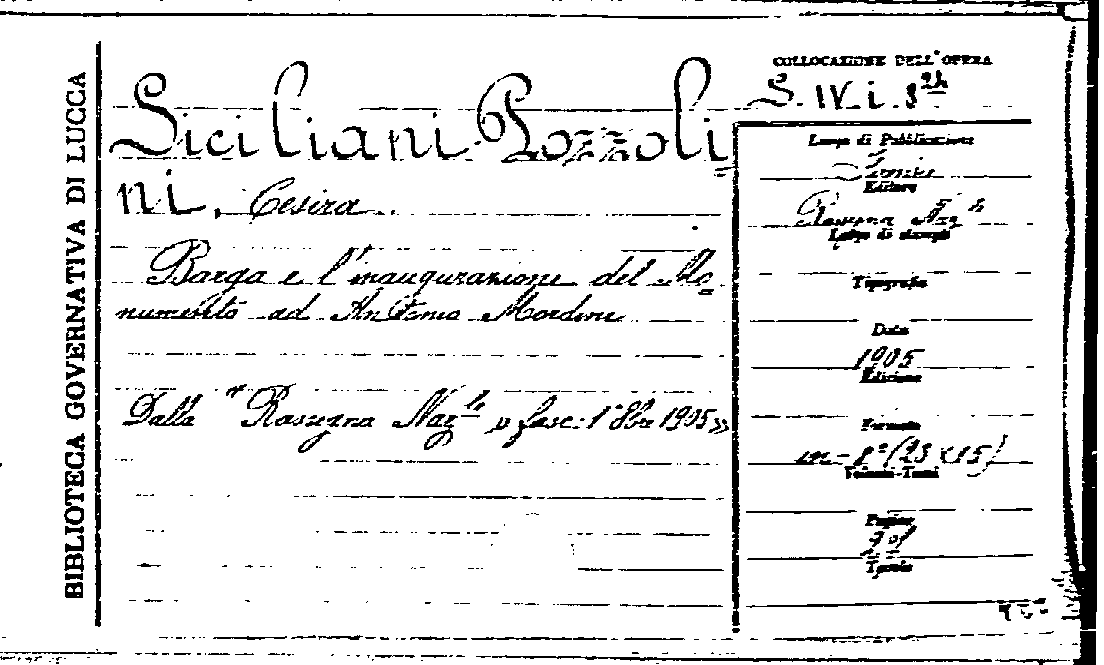 BIBLIOTECA GOVERNATIVA DI LUCCA
Siciliani Pozzoli
ni, Cesira.
Barga e l'inaugurazione del Mo
numento ad Antonio Mordini
Dalla "Rassegna Naz.le" fasc: 1° 8bre 1905»
COLLOCAZIONE DELL'OPERA
S. IV. i.
Luogo di Pubblicazione
Editore
Rassegna Naz.le
Luogo di stampa
Tipografia
Data
1905
Edizione
Formato
in-8° (23 x 15)
Volumi-Tomi
Pagine